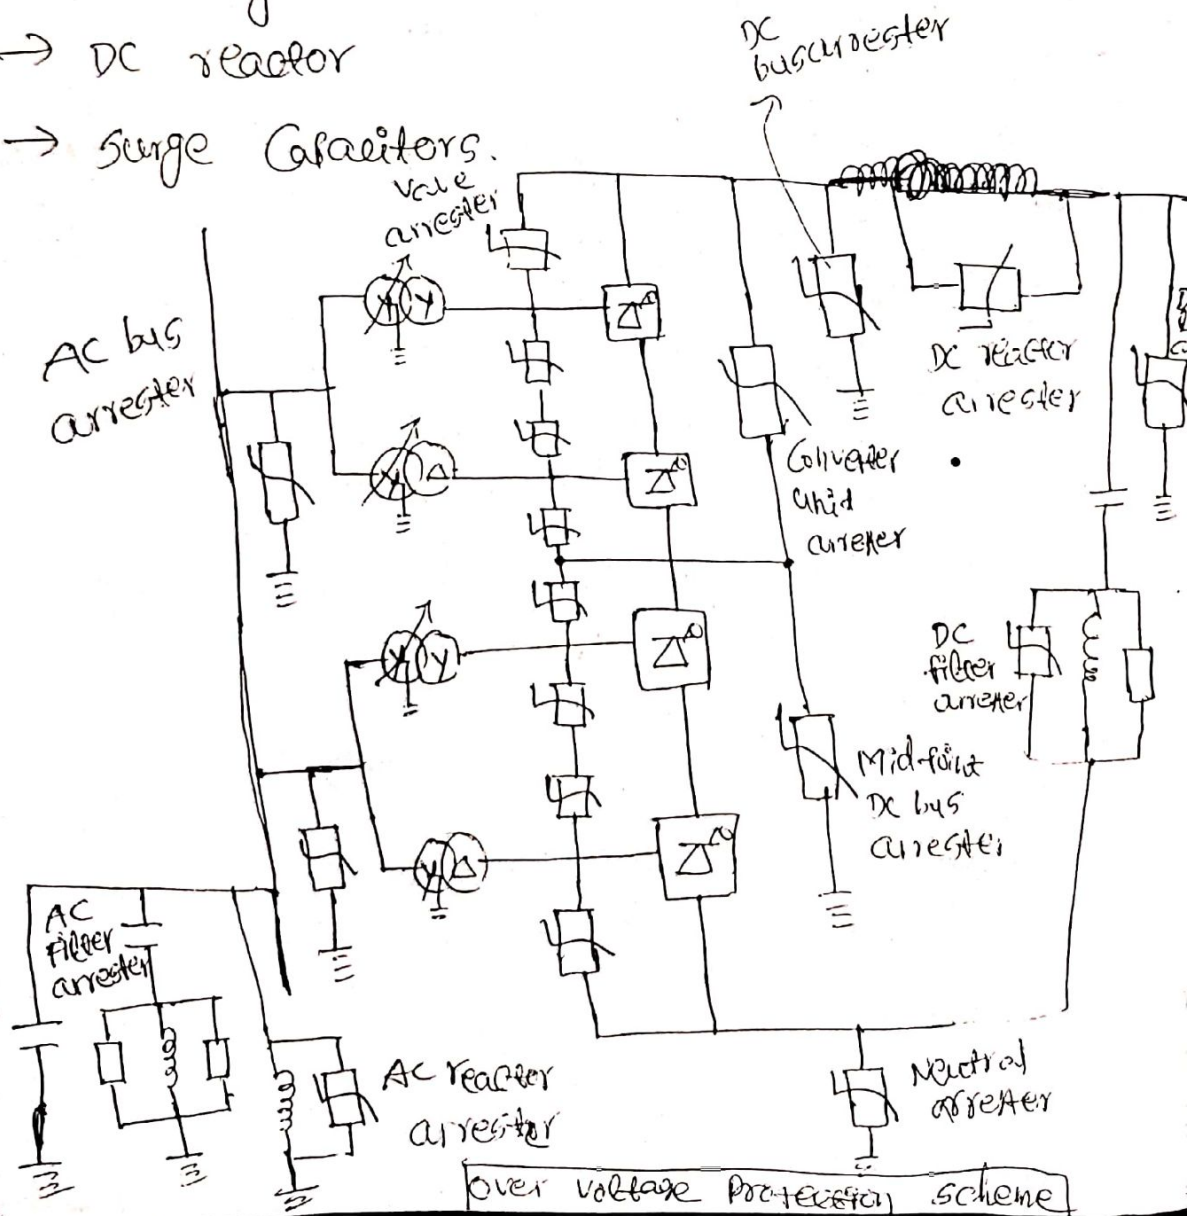 → DC reactor
→ Surge Capacitors.
Valve
arrester
DC
bus arrester
AC bus
arrester
DC reactor
arrester
Converter
unit
arrester
DC
filter
arrester
Mid-point
DC bus
arrester
AC
Filter
arrester
AC reactor
arrester
Neutral
arrester
Over voltage Protection scheme